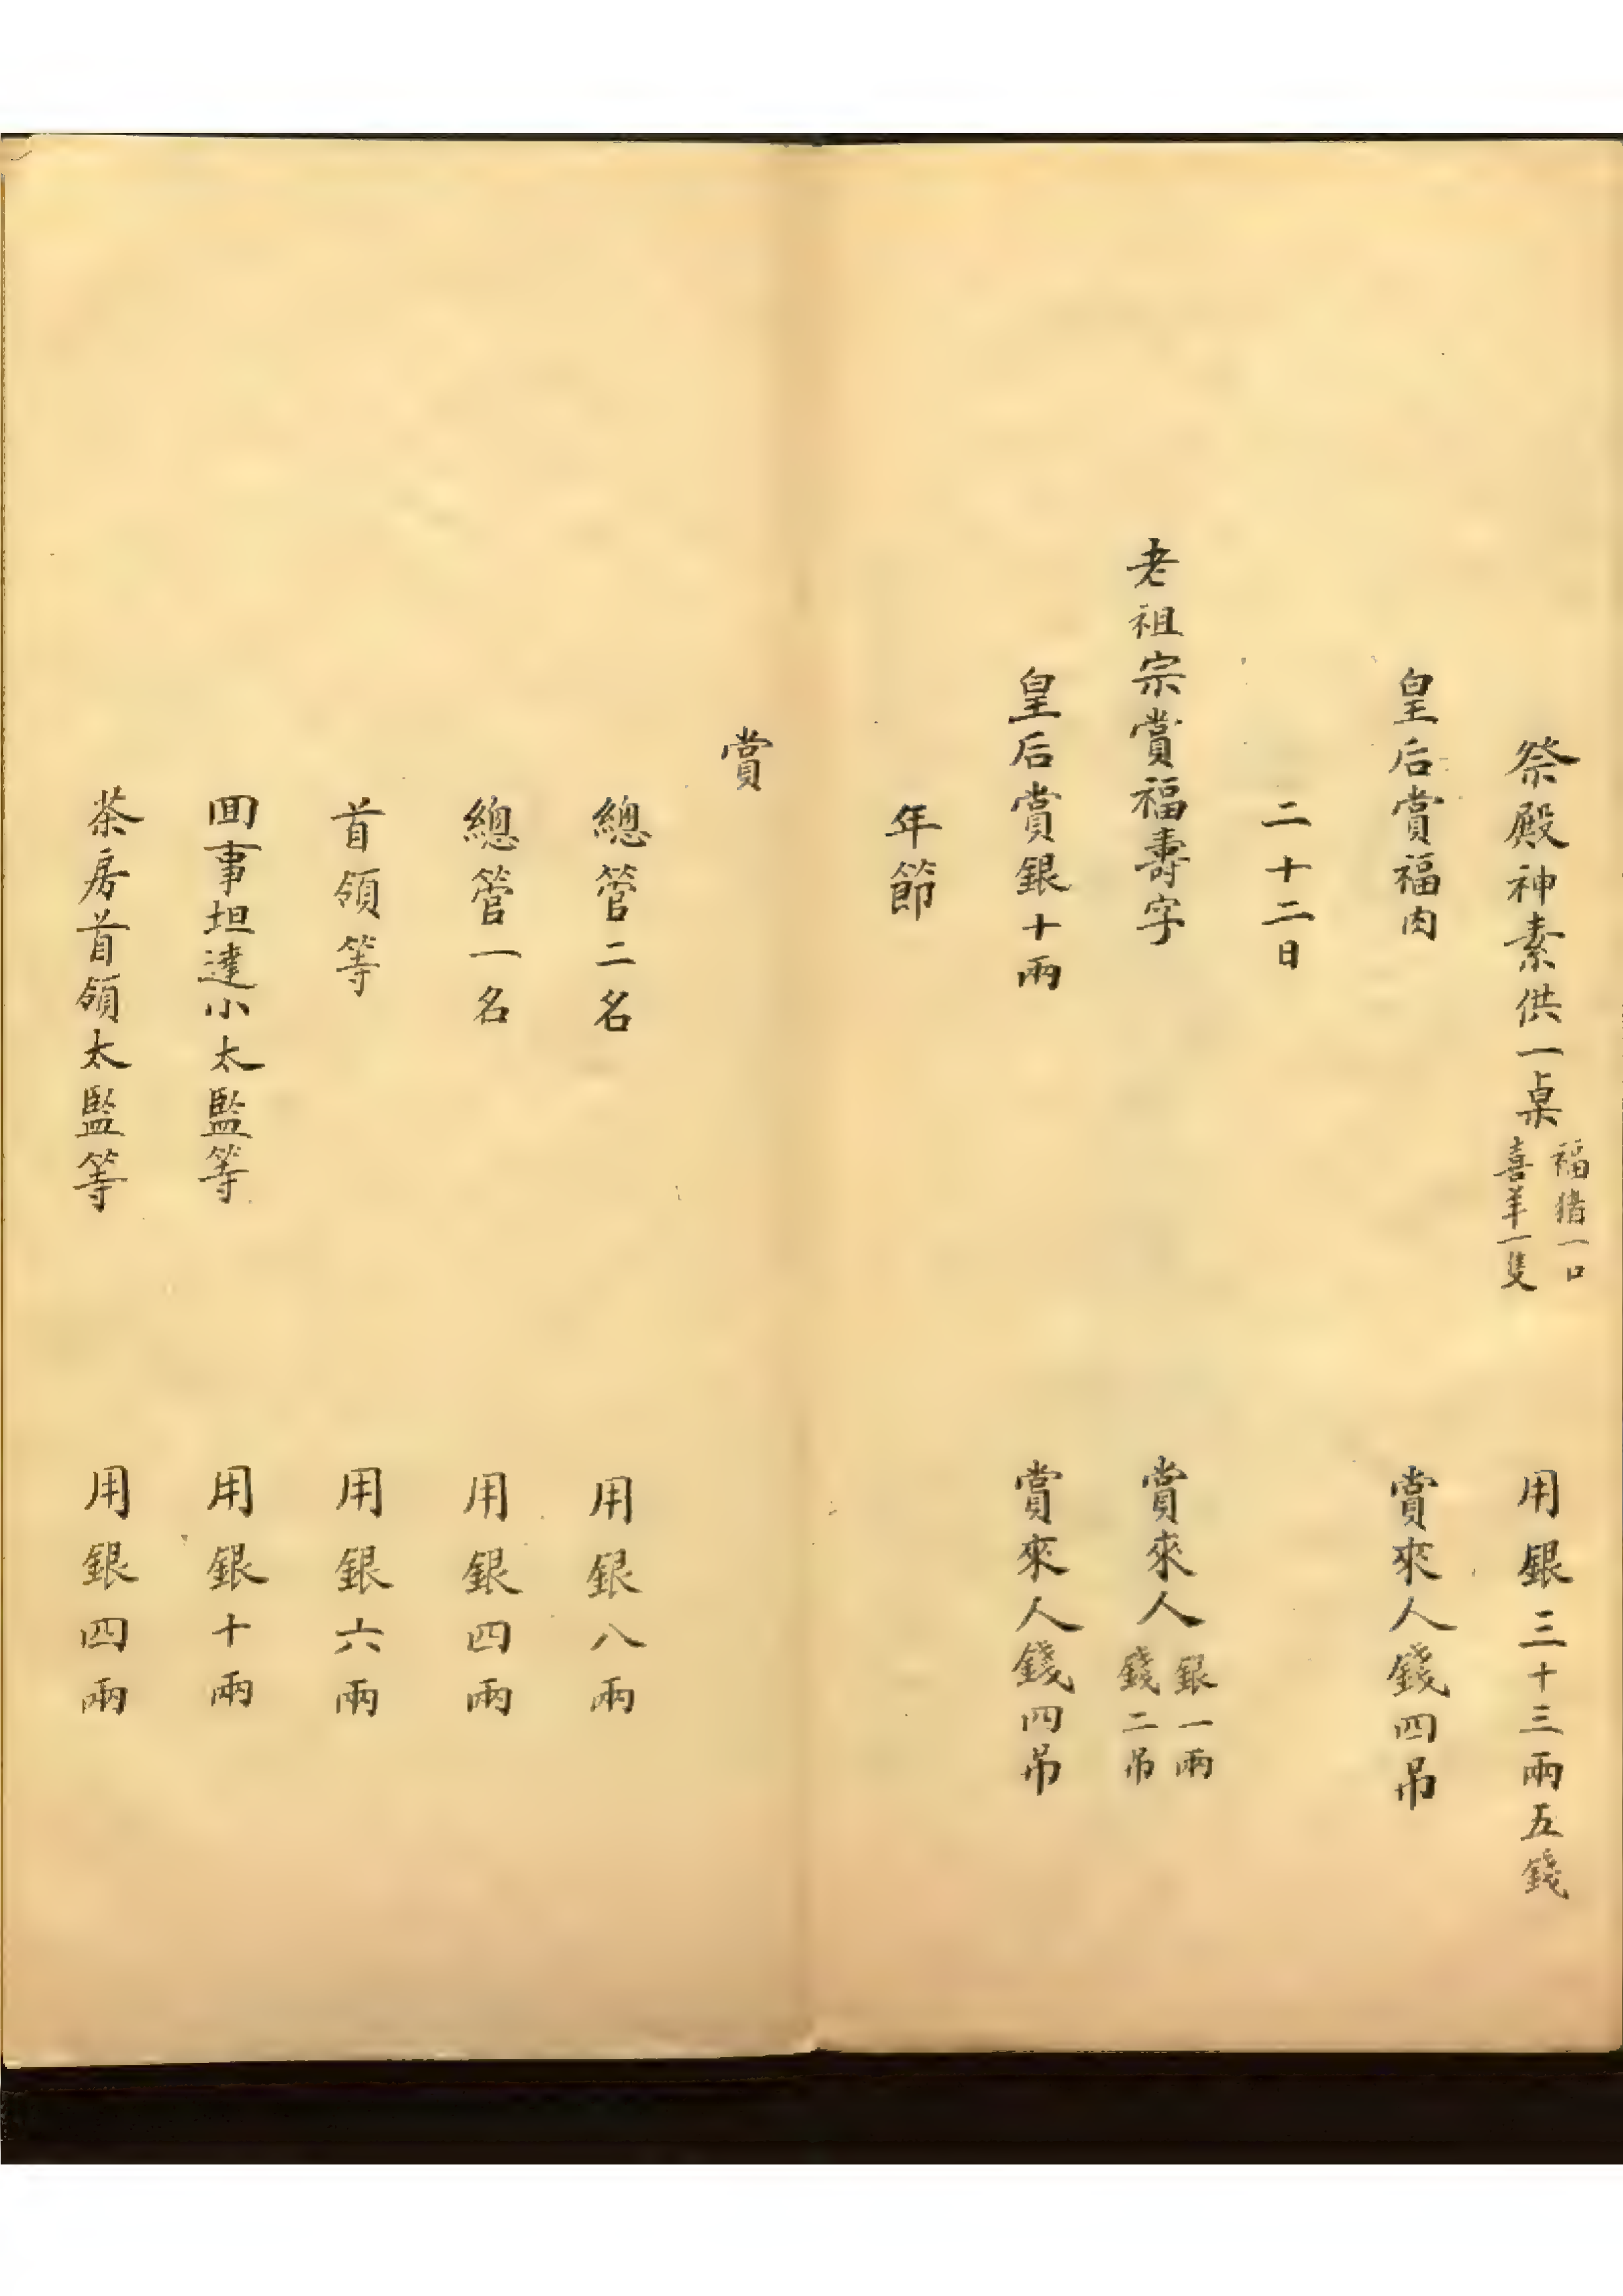 祭殿神素供一桌 福猪一口 喜羊一隻 用銀三十三兩五錢
皇后賞福肉 賞來人錢四吊
二十二日
老祖宗賞福壽字 賞來人 銀一兩 錢二吊
皇后賞銀十兩 賞來人錢四吊
年節
賞
總管二名 用銀八兩
總管一名 用銀四兩
首領等 用銀六兩
回事坦達小太監等 用銀十兩
茶房首領太監等 用銀四兩